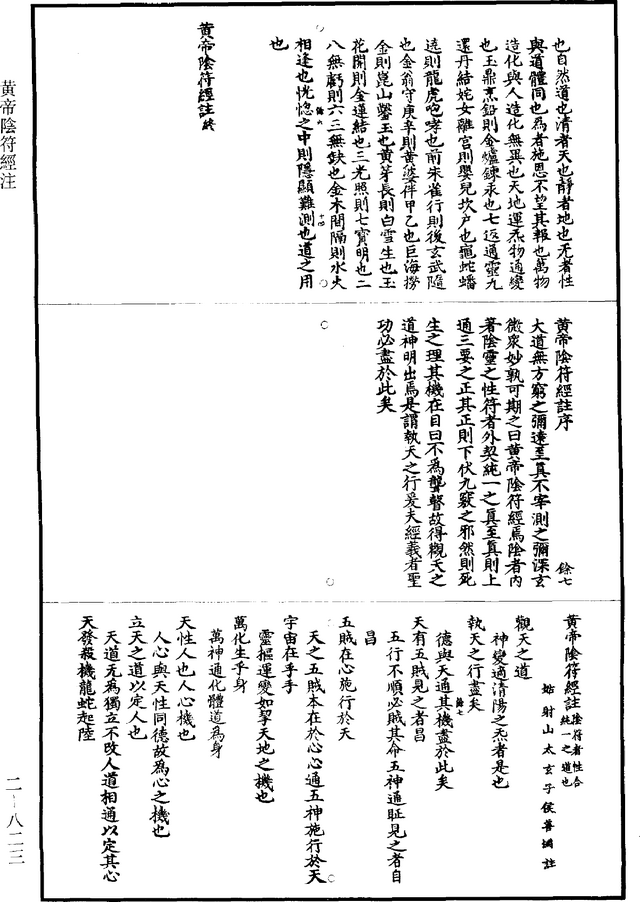 黄帝陰符經注
也自然道也清者天也靜者地也无者性
與道體同也為者施恩不望其報也萬物
造化與人造化無異也天地運炁物通變
也玉鼎烹鉛則金爐鍊汞也七返通靈九
還丹結姹女離宮則嬰兒坎户也龜蛇蟠
遶則龍虎咆哮也前朱雀行則後玄武隨
也金翁守庚辛則黄婆伴甲乙也巨海撈
金則崑山鑿玉也黄芽長則白雪生也玉
花開則金蓮結也三光照則七寶明也二
八無虧則六三無缺也金木間隔則水火
相逢也恍惚之中則隱顯難測也道之用
也
黄帝陰符經註終
黄帝陰符經註序 餘七
大道無方窮之彌遠至真不宰測之彌深玄
微衆妙孰可期之曰黄帝陰符經焉陰者内
著陰靈之性符者外契純一之真至真則上
通三要之正其正則下伏九竅之邪然則死
生之理其機在目曰不為聾瞽故得觀天之
道神明出焉是謂執天之行爰夫經義者聖
功必盡於此矣
黄帝陰符經註陰符者性合純一之道也
姑射山太玄子侯善淵註
觀天之道
神變適清陽之炁者是也
執天之行盡矣
德與天通其機盡於此矣
天有五賊見之者昌
五行不順必賊其命五神通眐見之者自
昌
五賊在心施行於天
天之五賊本在於心心通五神施行於天
宇宙在乎手
靈樞運變如挈天地之機也
萬化生乎身
萬神通化體道為身
天性人也人心機也
人心與天性同德故為心之機也
立天之道以定人也
天道无為獨立不改人道相通以定其心
天發殺機龍蛇起陸
二-八二三